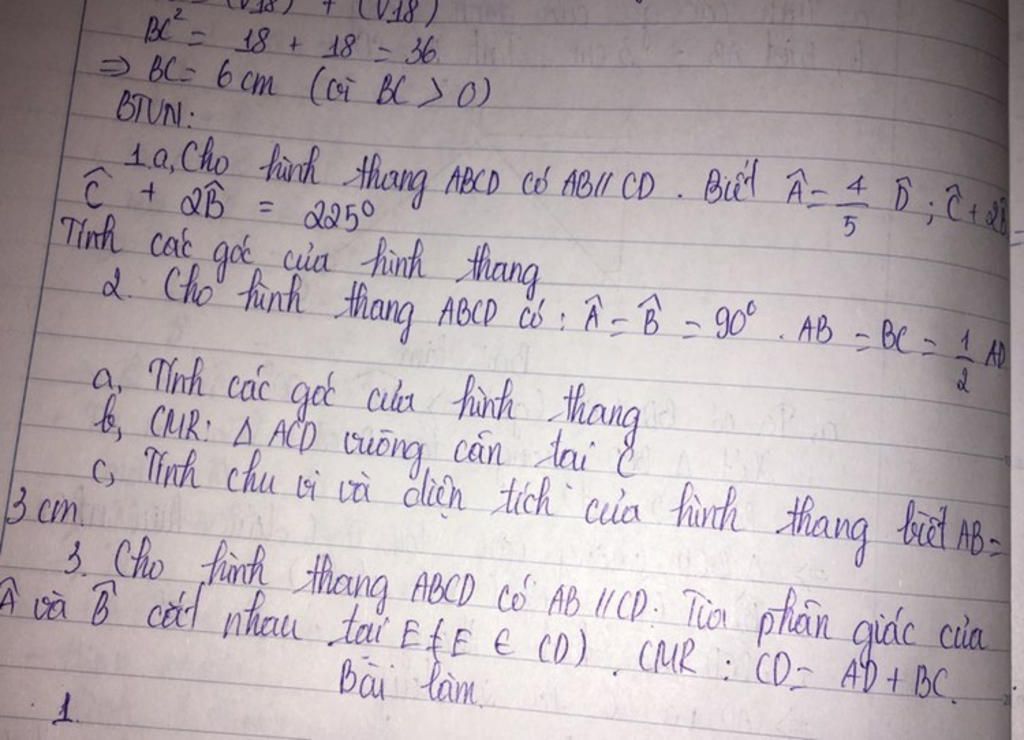 = (√18) + (√18)
BC² = 18 + 18 = 36
⇒ BC = 6 cm (vì BC > 0)
BTVN:
1. a, Cho hình thang ABCD có AB // CD. Biết Â = 4/5 D̂ ; Ĉ + 2B̂
Ĉ + 2B̂ = 225°
Tính các góc của hình thang
2. Cho hình thang ABCD có : Â = B̂ = 90°. AB = BC = 1/2 AD
a, Tính các góc của hình thang
b, CMR: Δ ACD vuông cân tại C
c, Tính chu vi và diện tích của hình thang biết AB =
3 cm.
3. Cho hình thang ABCD có AB // CD. Tia phân giác của
Â và B̂ cắt nhau tại E (E ∈ CD). CMR : CD = AD + BC.
Bài làm
1.